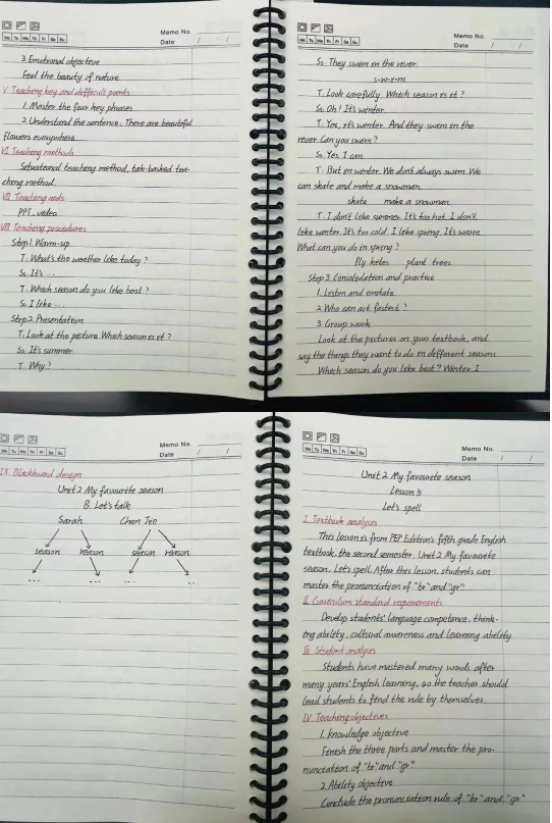 Memo No.
Mo Tu We Th Fr Sa Su
Date / /
3. Emotional objective
Feel the beauty of nature.
V. Teaching key and difficult points
1. Master the four key phrases
2. Understand the sentence: There are beautiful
flowers everywhere.
VI. Teaching methods
Situational teaching method, task-basked tea-
ching method.
VII. Teaching aids
PPT, video
VIII. Teaching procedures
Step 1. Warm-up
T: What's the weather like today?
Ss: It's ...
T: Which season do you like best?
Ss: I like ...
Step 2. Presentation
T: Look at the picture. Which season is it?
Ss: It's summer
T: Why?
Memo No.
Mo Tu We Th Fr Sa Su
Date / /
Ss: They swim in the river.
s-w-i-m
T: Look carefully. Which season is it?
Ss: Oh! It's winter
T: Yes, it's winter. And they swim in the
river. Can you swim?
S: Yes, I can.
T: But in winter. We don't always swim. We
can skate and make a snowman.
skate make a snowman
T: I don't like summer. It's too hot. I don't
like winter. It's too cold. I like spring. It's warm.
What can you do in spring?
fly kites plant trees
Step 3. Consolidation and practice
1. Listen and imitate
2. Who can act fastest?
3. Group work
Look at the pictures on your textbook, and
say the things they want to do in different seasons.
Which season do you like best? Winter. I
Memo No.
Mo Tu We Th Fr Sa Su
Date / /
IX. Blackboard design
Unit 2 My favourite season
B. Let's talk
Sarah Chen Jie
season reason season reason
... ... ... ...
Memo No.
Mo Tu We Th Fr Sa Su
Date / /
Unit 2. My favourite season
Lesson 5
Let's spell
I. Textbook analysis
This lesson is from PEP Edition's fifth grade English
textbook, the second semester. Unit 2 My favourite
season. Let's spell. After this lesson, students can
master the pronunciation of "br" and "gr"
II. Curriculum standard requirements
Develop students' language competence, think-
ing ability, cultural awareness and learning ability
III. Student analysis
Students have mastered many words after
many years' English learning, so the teacher should
lead students to find the rule by themselves.
IV. Teaching objectives
1. Knowledge objective
Finish the three parts and master the pro-
nunciation of "br" and "gr"
2. Ability objective
Conclude the pronunciation rule of "br" and "gr"